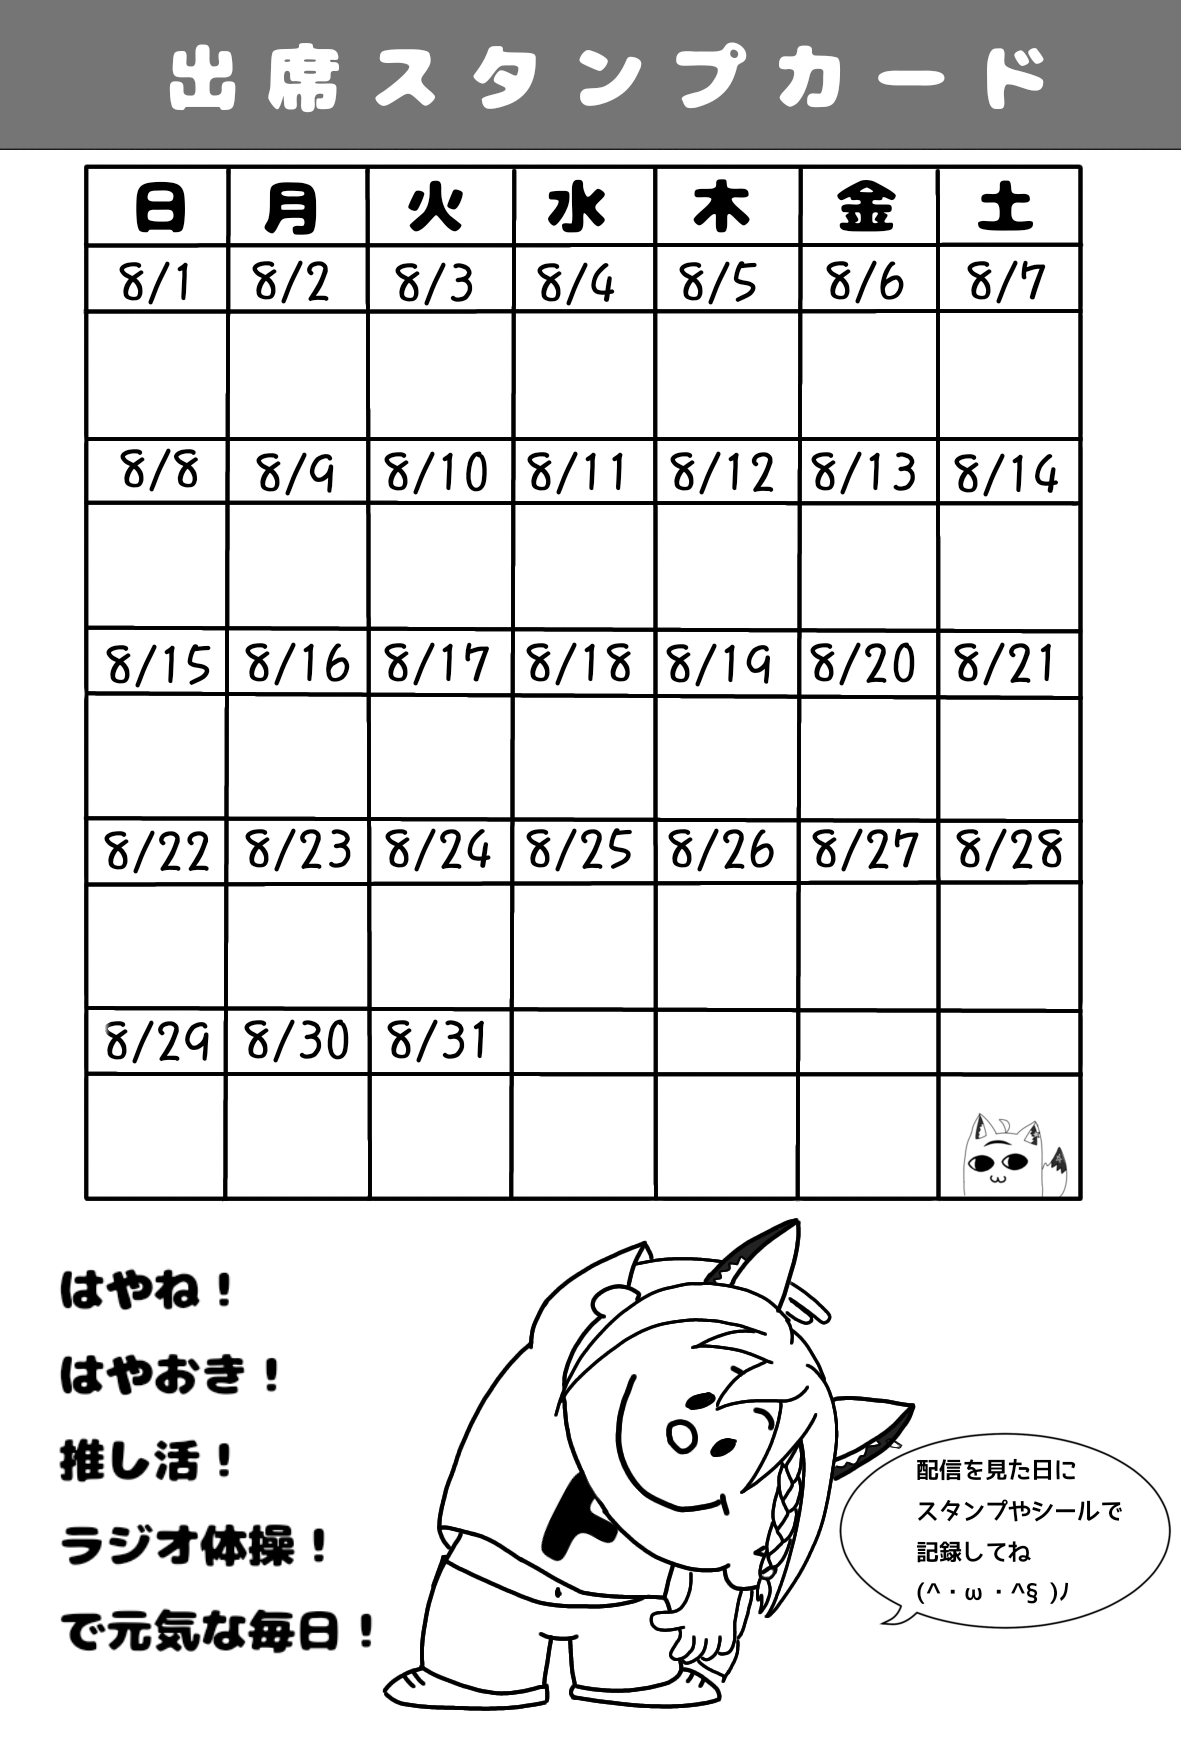 出席スタンプカード
日 月 火 水 木 金 土
8/1 8/2 8/3 8/4 8/5 8/6 8/7
8/8 8/9 8/10 8/11 8/12 8/13 8/14
8/15 8/16 8/17 8/18 8/19 8/20 8/21
8/22 8/23 8/24 8/25 8/26 8/27 8/28
8/29 8/30 8/31
はやね！
はやおき！
推し活！
ラジオ体操！
で元気な毎日！
配信を見た日に
スタンプやシールで
記録してね
(^・ω・^§)ﾉ